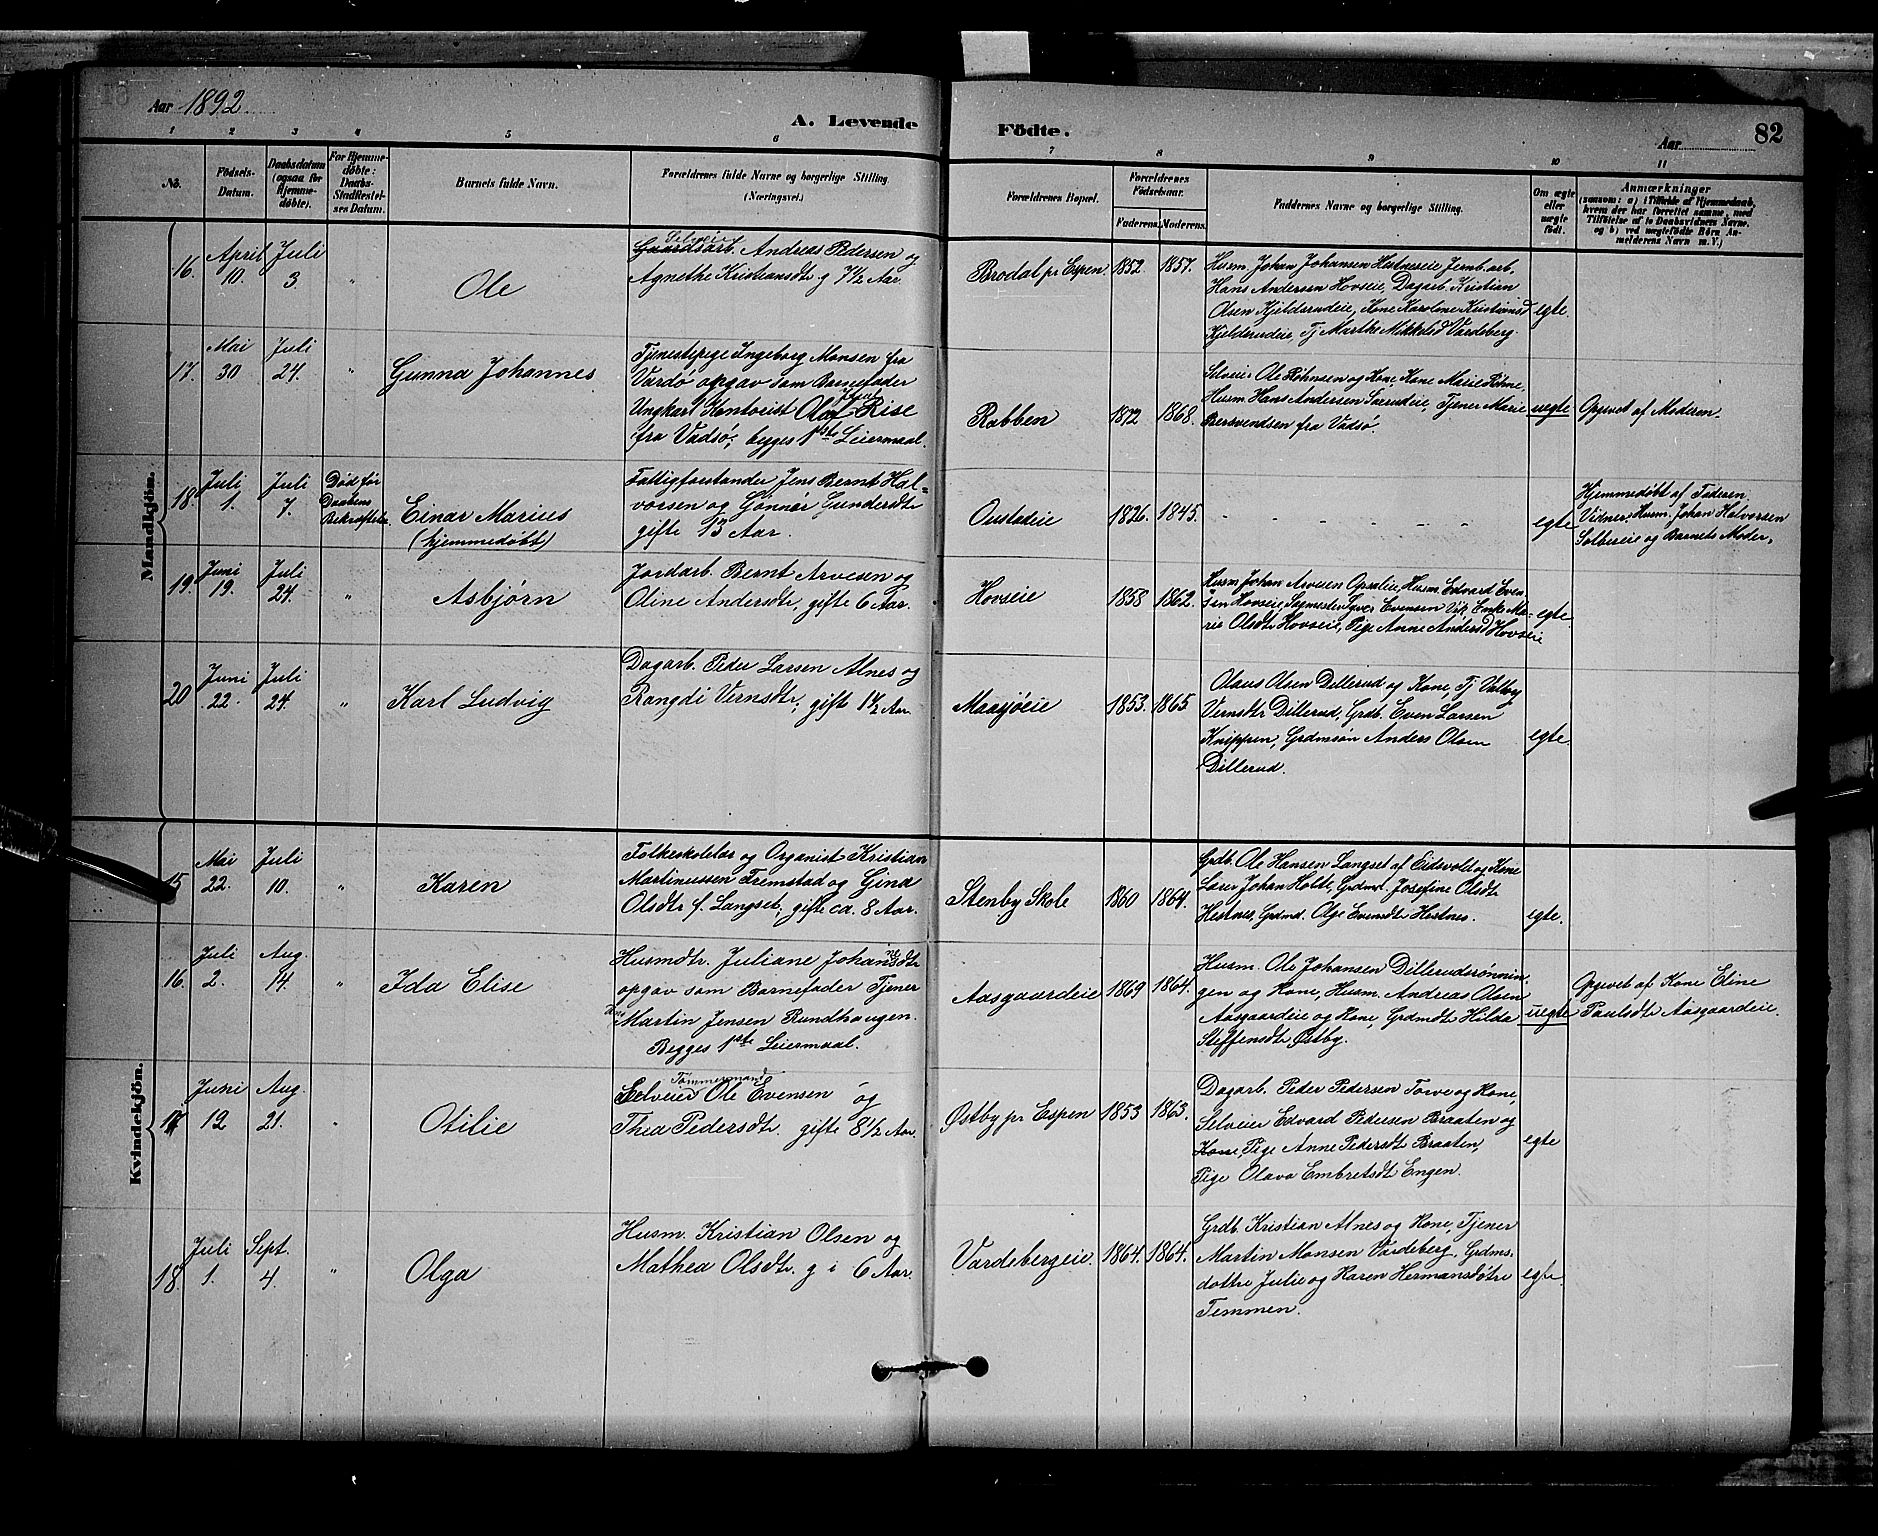 Aar 1892
A. Levende
Födte.
Aar
82
1 2 3 4 5 6 7 8 9 10 11
No.
Födsels-
Datum.
Daabsdatum
(ogsaa for
Hjemme-
döbte).
For Hjemme-
döbte:
Daabs-
Stadfæstel-
ses Datum.
Barnets fulde Navn.
Forældrenes fulde Navne og borgerlige Stilling
(Næringsvei.)
Forældrenes Bopæl.
Forældrenes
Födselsaar.
Faderens. Moderens.
Faddernes Navne og borgerlige Stilling.
Om ægte
eller
uægte
födt.
Anmærkninger
(saasom: a) i Tilfælde af Hjemmedaab,
hvem der har forrettet samme, med
Tilföielse af to Daabsvidners Navne.
og b) ved uægtefödte Börn An-
melderens Navn m. V.)
Mandkjön.
16. April 10. Juli 3 " Ole
Selveier
Gaardsarb. Andreas Pedersen og
Agnethe Kristiansdt g 7 1/2 Aar.
Brodal pr Espen 1852 1857.
Husm. Johan Johansen Hestneseie, Jernb.arb.
Hans Andersen Hovseie, Dagarb. Kristian
Olsen Kjeldsrudeie, Kone Karoline Kristiansd
Kjeldsrudeie, Tj Marthe Mikkelsd Vardeberg.
egte.
17. Mai 30 Juli 24. " Gunna Johannes
Tjenestepige Ingeborg Monsen fra
Vardø opgav som Barnefader
Ungkarl Kontorist Olaf Rise
fra Vadsø, begges 1ste Leiermaal.
Robben 1872 1868.
Selveier Ole Röhnsen og Kone, Kone Marie Röhne,
Husm. Hans Andersen Sørudeie, Tjener Marie
Bersvendsen fra Vadsø.
uegte
Opgivet af Moderen.
18. Juli 1. Juli 7. Død før
Daabens
Bekræftelse
Einar Marius
(hjemmedøbt)
Fattigforstander Jens Bernt Hal-
vorsen og Gønnør Gundersdt
gifte 13 Aar.
Oustadeie 1826. 1845.
- - - - - -
egte
Hjemmedøbt af Faderen.
Vidner: Husm. Johan Halvorsen
Solbseie og Barnets Moder.
19. Juni 19. Juli 24. " Asbjørn
Jordarb. Bernt Arvesen og
Oline Andersdt, gifte 6 Aar.
Hovseie 1858 1862.
Husm Johan Arvesen Opsaleie, Husm. Edvard Even
sen Hovseie, Sagmester Syver Evensen Vik, Enke Ma-
rie Olsdt Hovseie, Pige Anne Andersd Hovseie
egte.
20 Juni 22. Juli 24. " Karl Ludvig
Dagarb. Peder Larsen Alnes og
Rangdi Vernsdtr, gifte 1 1/2 Aar.
Maasjøeie 1853. 1865.
Olaus Olsen Dillerud og Kone, Tj Valbog
Vernsdtr Dillerud, Grdb. Even Larsen
Knippen, Grdmsøn Anders Olsen
Dillerud.
egte.
Kvindekjön.
15 Mai 22. Juli 10. " Karen
Folkeskolelær og Organist Kristian
Martinussen Fremstad og Gina
Olsdtr f. Langset, gifte ca. 8 Aar.
Stenby Skole 1860 1864.
Grdb. Ole Hansen Langset af Eidsvold og Kone
Lærer Johan Holte, Grdmd. Josefine Olsdt
Hestnes, Grdmd. Olge Evensdt Hestnes.
egte.
16. Juli 2. Aug. 14. " Ida Elise
Husmdtr. Juliane Johannesdt
opgav som Barnefader Tjener
Martin Jensen Rundhaugen.
Begges 1ste Leiermaal.
Aasgaardeie 1869 1864.
Husm. Ole Johansen Dillerudsrønnin-
gen og Kone, Husm. Andreas Olsen
Aasgaardeie og Kone, Grdmdt Hilda
Steffensdt Østby.
uegte
Opgivet af Kone Eline
Paulsdt Aasgaardeie.
17 Juni 12 Aug. 21. " Otilie
Tømmermand
Selveier Ole Evensen og
Thea Pedersdt. gifte 8 1/2 Aar.
Østby pr Espen 1853 1863.
Dagarb. Peder Pedersen Torve og Kone,
Selveier Edvard Pedersen Braaten og
Kone, Pige Anne Pedersdt Braaten,
Pige Olava Embretsdt Engen.
egte
18. Juli 1. Sept. 4. " Olga
Husm. Kristian Olsen og
Mathea Olsdt. g i 6 Aar.
Vardebergeie. 1864. 1864.
Grdb. Kristian Alnes og Kone, Tjener
Martin Monsen Vardeberg, Grdms.
dottre Julie og Karen Hermansdøtre
Temmen.
egte.